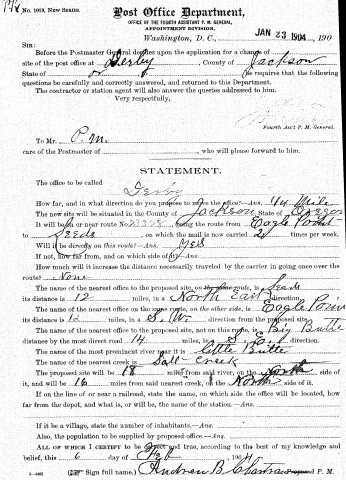 No. 1019, New Series.
Post Office Department,
OFFICE OF THE FOURTH ASSISTANT P. M. GENERAL,
APPOINTMENT DIVISION,
Washington, D. C., JAN 23 1904, 190
SIR:
Before the Postmaster General decides upon the application for a change of
site of the post office at Derby, County of Jackson
State of Or, he requires that the following
questions be carefully and correctly answered, and returned to this Department.
The contractor or station agent will also answer the queries addressed to him.
Very respectfully,
Fourth Ass't P. M. General.
To Mr. P.M.
care of the Postmaster of, who will please forward to him.
STATEMENT.
The office to be called Derby
How far, and in what direction do you propose to move the office?-Ans. 1/4 Mile
The new site will be situated in the County of Jackson, State of Oregon
It will be on or near route No. being the route from Eagle Point
to Leeds, on which the mail is now carried times per week.
Will it be directly on this route?-Ans. Yes
If not, how far from, and on which side of it?-Ans.
How much will it increase the distance necessarily traveled by the carrier in going once over the
route? - None
The name of the nearest office to the proposed site, on the same route, is Leeds
its distance is 12 miles, in a North East direction.
The name of the nearest office on the same route, on the other side, is Eagle Point
its distance is 12 miles, in a S. W. direction from the proposed site.
The name of the nearest office to the proposed site, not on this route, is Big Butte
distance by the most direct road 14 miles, in a direction.
The name of the most prominent river near it is Little Butte
The name of the nearest creek is Salt Creek
The proposed site will be 18 miles from said river, on the North side of
it, and will be 16 miles from said nearest creek, on the North side of it.
If on the line of or near a railroad, state the name, and on which side the office will be located, how
far from the depot, and what is, or will be, the name of the station.-Ans.
If it be a village, state the number of inhabitants.-Ans.
Also, the population to be supplied by proposed office.-Ans.
ALL OF WHICH I CERTIFY to be correct and true, according to the best of my knowledge and
belief, this 6 day of Feb, 1904
Sign full name.) Andrew B. Proposed P. M.